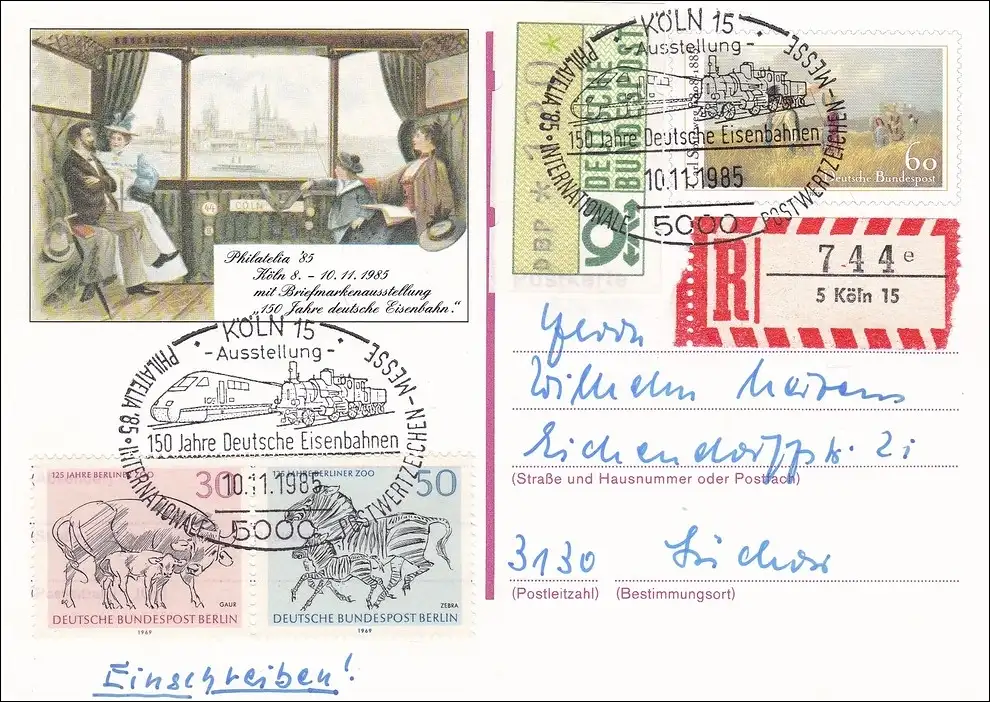 CÖLN
Philatelia '85
Köln 8. - 10. 11. 1985
mit Briefmarkenausstellung
„150 Jahre deutsche Eisenbahn."
KÖLN 15
- Ausstellung -
PHILATELIA '85 · INTERNATIONALE POSTWERTZEICHEN-MESSE
150 Jahre Deutsche Eisenbahnen
10.11.1985
5000
DBP
DEUTSCHE
BUNDESPOST
60
Deutsche Bundespost
R
744 e
5 Köln 15
Postkarte
Herrn
Wilhelm
Eichendorffstr. 21
(Straße und Hausnummer oder Postfach)
3130 Lüchow
(Postleitzahl) (Bestimmungsort)
KÖLN 15
- Ausstellung -
PHILATELIA '85 · INTERNATIONALE POSTWERTZEICHEN-MESSE
150 Jahre Deutsche Eisenbahnen
10.11.1985
5000
125 JAHRE BERLINER ZOO 30
GAUR
DEUTSCHE BUNDESPOST BERLIN
1969
125 JAHRE BERLINER ZOO 50
ZEBRA
DEUTSCHE BUNDESPOST BERLIN
1969
Einschreiben!